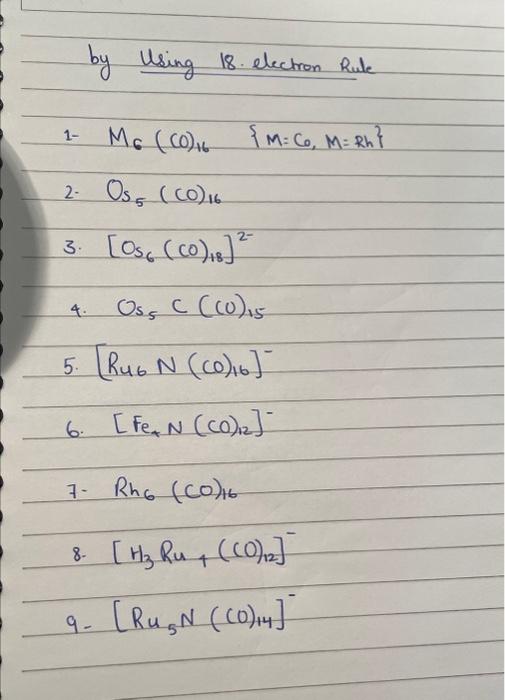 by Using 18. electron Rule
1- M₆ (CO)₁₆ {M=Co, M=Rh}
2- Os₅ (CO)₁₆
3. [Os₆ (CO)₁₈]²⁻
4. Os₅ C (CO)₁₅
5. [Ru₆ N (CO)₁₆]⁻
6. [Fe₄ N (CO)₁₂]⁻
7- Rh₆ (CO)₁₆
8- [H₃ Ru₄ (CO)₁₂]⁻
9- [Ru₅N (CO)₁₄]⁻